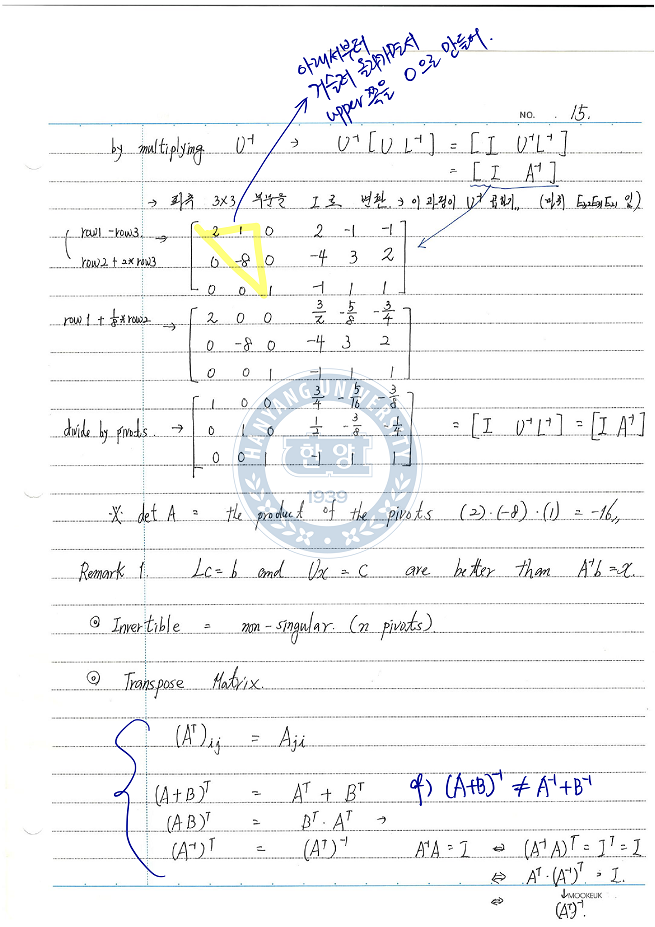 아래서부터
거슬러 올라가면서
upper 쪽을 0으로 만들어.
NO. 15.
by multiplying U⁻¹ → U⁻¹ [ U L⁻¹ ] = [ I U⁻¹L⁻¹ ]
= [ I A⁻¹ ]
→ 좌측 3×3 부분을 I로 변환 → 이 과정이 U⁻¹ 곱하기,,
row1 - row3 → 2 1 0 2 -1 -1
row2 + 2*row3 0 -8 0 -4 3 2
0 0 1 -1 1 1
row1 + 1/8*row2 → 2 0 0 3/2 -5/8 -3/4
0 -8 0 -4 3 2
0 0 1 -1 1 1
1 0 0 3/4 -5/16 -3/8
divide by pivots. → 0 1 0 1/2 -3/8 -1/4 = [ I U⁻¹L⁻¹ ] = [ I A⁻¹ ]
0 0 1 -1 1 1
HANYANG UNIVERSITY
한양
1939
※ det A = the product of the pivots (2)·(-8)·(1) = -16,,
Remark 1. Lc = b and Ux = c are better than A⁻¹b = x.
◎ Invertible = non-singular. (n pivots).
◎ Transpose Matrix.
(Aᵀ)ij = Aji
(A+B)ᵀ = Aᵀ + Bᵀ cf) (A+B)⁻¹ ≠ A⁻¹+B⁻¹
(AB)ᵀ = Bᵀ·Aᵀ →
(A⁻¹)ᵀ = (Aᵀ)⁻¹ A⁻¹A = I ⇔ (A⁻¹A)ᵀ = Iᵀ = I
⇔ Aᵀ·(A⁻¹)ᵀ = I.
MOOKEUK
⇔ (Aᵀ)⁻¹.